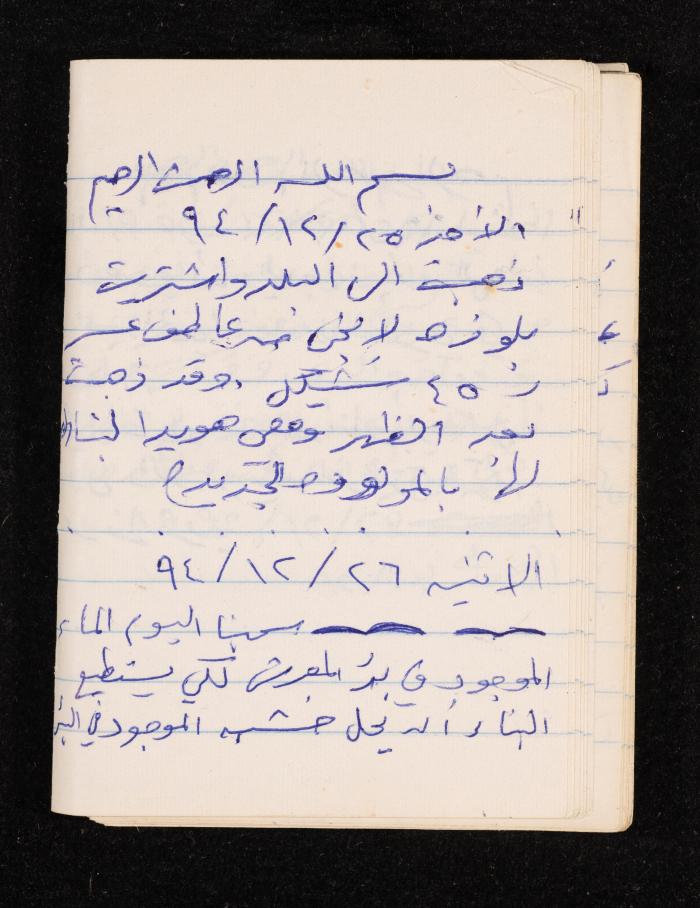 بسم الله الرحمن الرحيم
الأحد ٩٤/١٢/٢٥
ذهبت الى البلد واشتريت
بلوزه لإبني
ب ٤٥ شيكل، وقد ذهبت
بعد الظهر هويدا
لها بالمولوده الجديده
الاثنين ٩٤/١٢/٢٦
سحبنا اليوم الماء
الموجود في بئر المعرش لكي يستطيع
البناء أن يحل خشبه الموجود في البئر